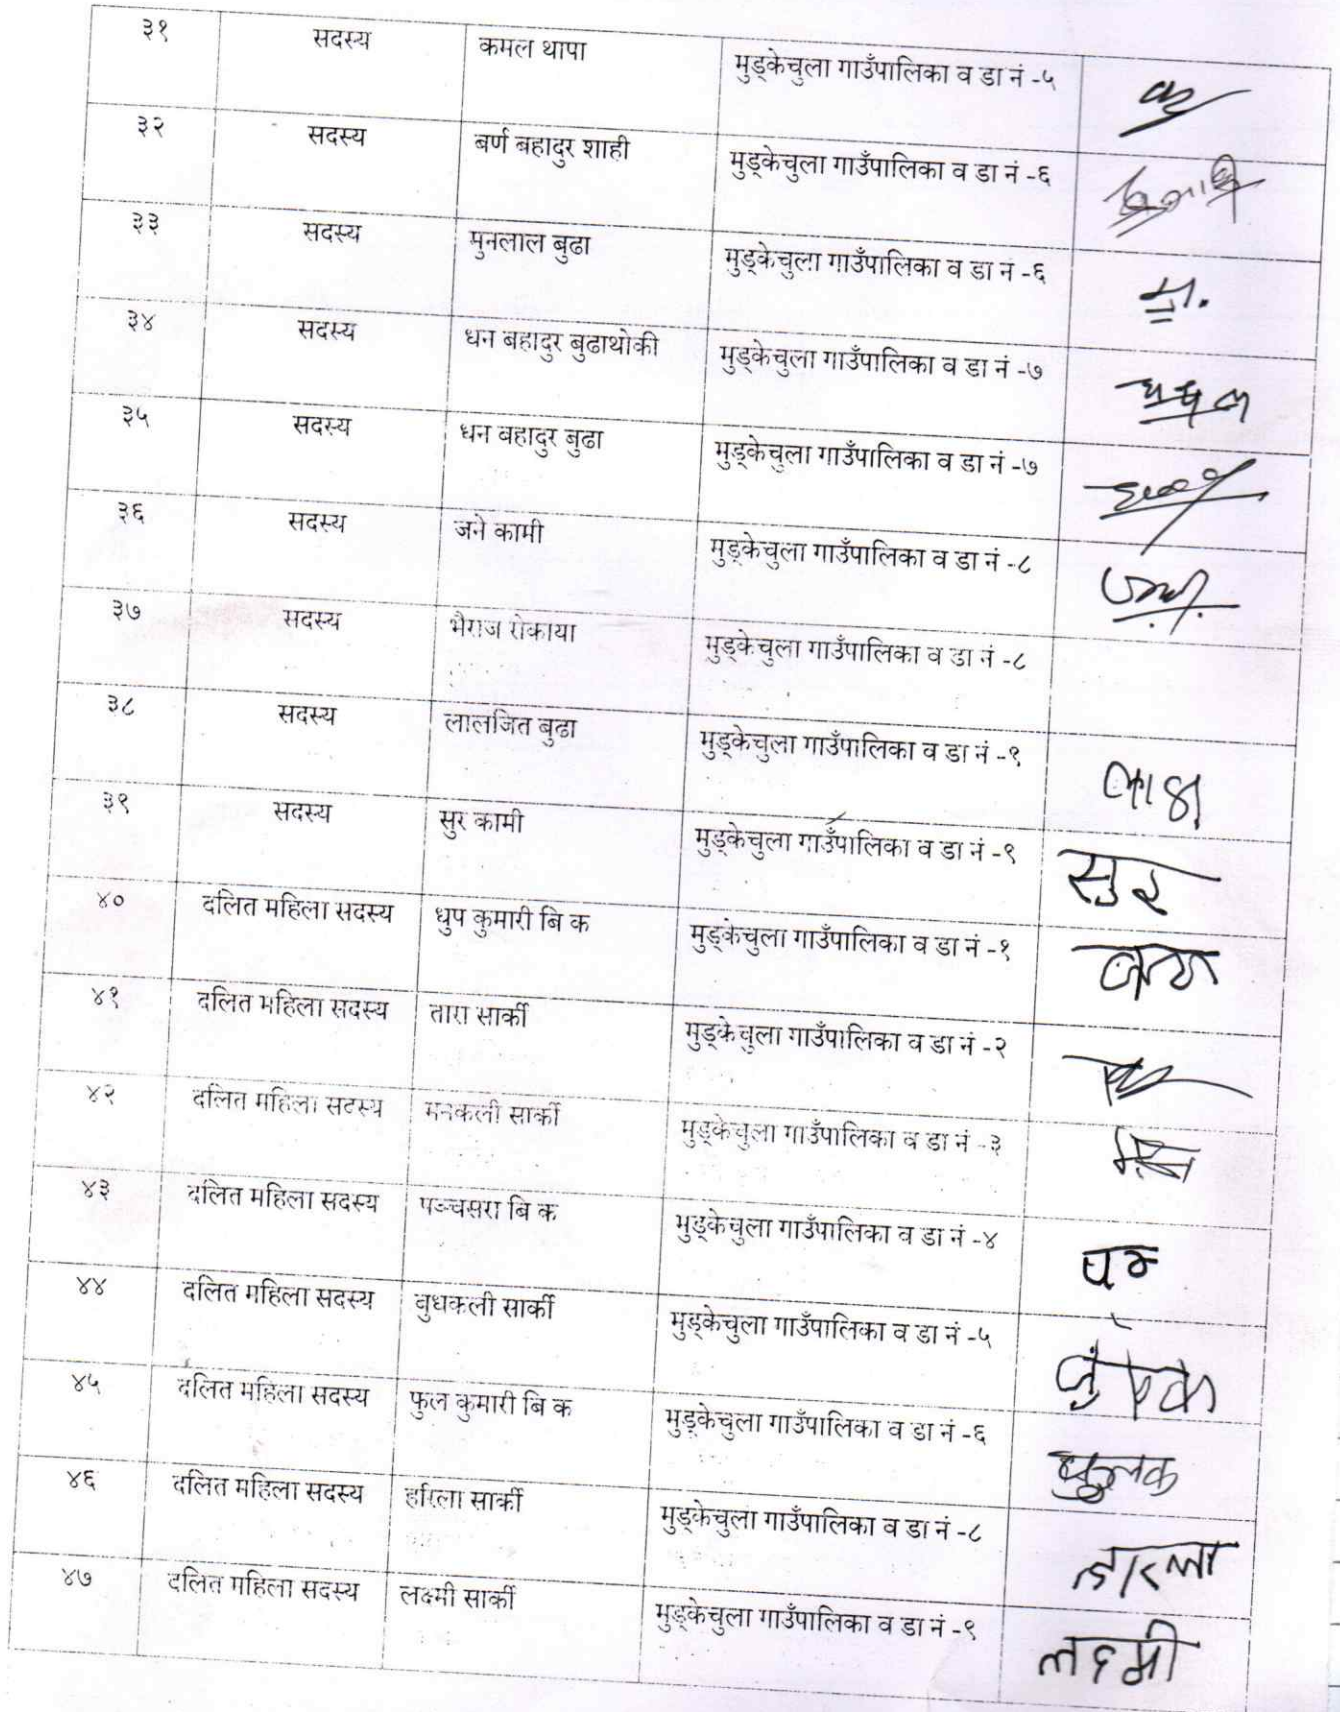 ३१ सदस्य कमल थापा मुड्केचुला गाउँपालिका व डा नं -५
३२ सदस्य बर्ण बहादुर शाही मुड्केचुला गाउँपालिका व डा नं -६
३३ सदस्य मुनलाल बुढा मुड्केचुला गाउँपालिका व डा नं -६
३४ सदस्य धन बहादुर बुढाथोकी मुड्केचुला गाउँपालिका व डा नं -७
३५ सदस्य धन वहादुर बुढा मुड्केचुला गाउँपालिका व डा नं -७
३६ सदस्य जने कामी मुड्केचुला गाउँपालिका व डा नं -८
३७ सदस्य भैराज रोकाया मुड्केचुला गाउँपालिका व डा नं -८
३८ सदस्य लालजित बुढा मुड्केचुला गाउँपालिका व डा नं -९
३९ सदस्य सुर कामी मुड्केचुला गाउँपालिका व डा नं -९ सुर
४० दलित महिला सदस्य धुप कुमारी बि क मुड्केचुला गाउँपालिका व डा नं -१
४१ दलित महिला सदस्य तारा सार्की मुड्केचुला गाउँपालिका व डा नं -२
४२ दलित महिला सदस्य मनकली सार्की मुड्केचुला गाउँपालिका व डा नं -३
४३ दलित महिला सदस्य पञ्चसरा बि क मुड्केचुला गाउँपालिका व डा नं -४
४४ दलित महिला सदस्य वुधकली सार्की मुड्केचुला गाउँपालिका व डा नं -५
४५ दलित महिला सदस्य फुल कुमारी बि क मुड्केचुला गाउँपालिका व डा नं -६
४६ दलित महिला सदस्य हरिला सार्की मुड्केचुला गाउँपालिका व डा नं -८
४७ दलित महिला सदस्य लक्ष्मी सार्की मुड्केचुला गाउँपालिका व डा नं -९ लक्ष्मी